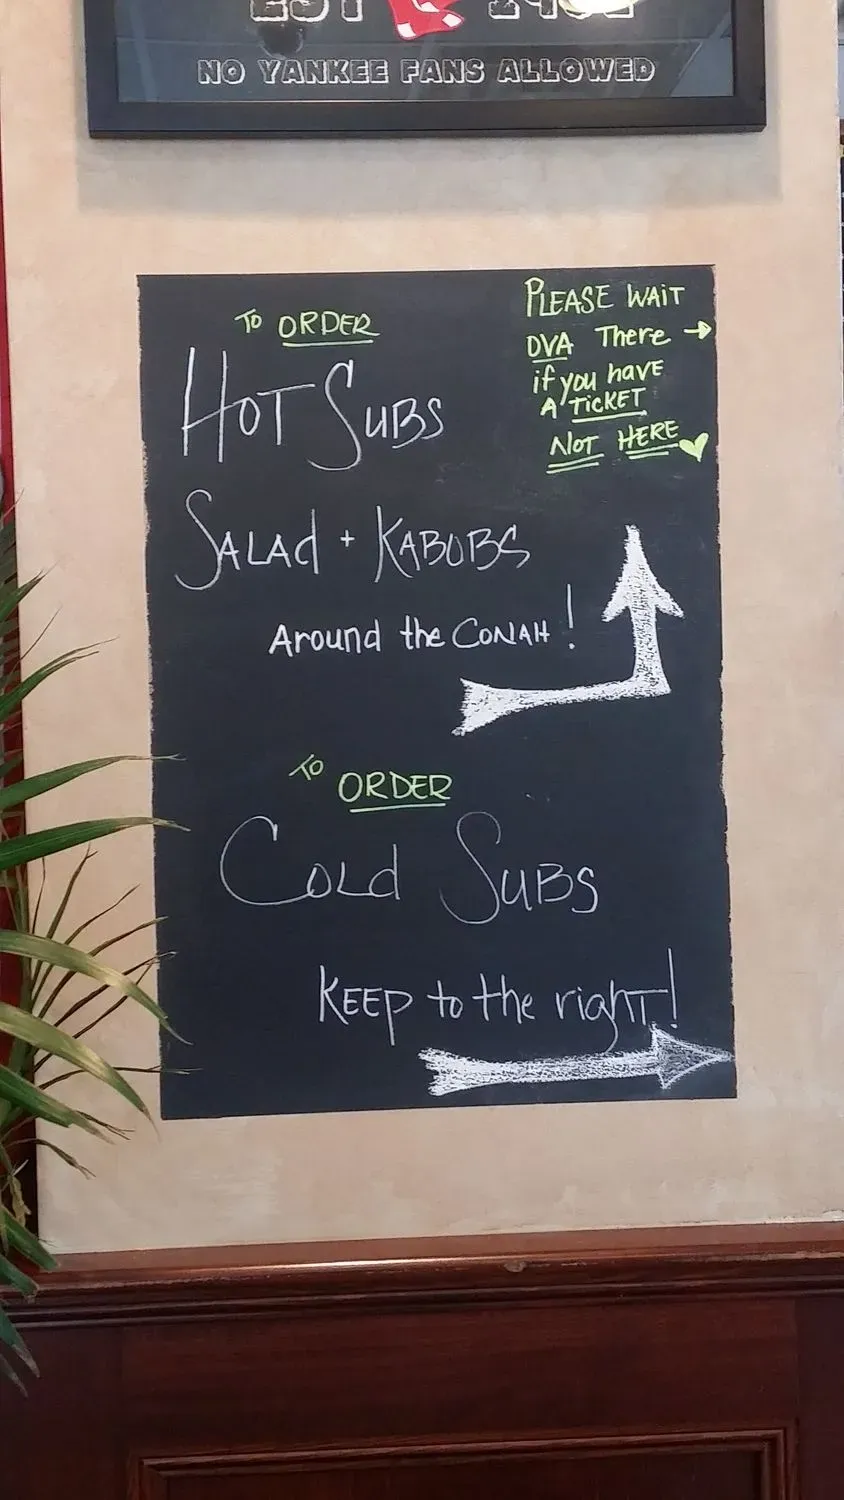 EST
NO YANKEE FANS ALLOWED
TO ORDER
HOT SUBS
SALAd + KABOBS
Around the CONAH!
PLEASE WAIT
OVA There →
if you have
A TICKET
NOT HERE
TO ORDER
COLd SUBS
KEEP to the right!